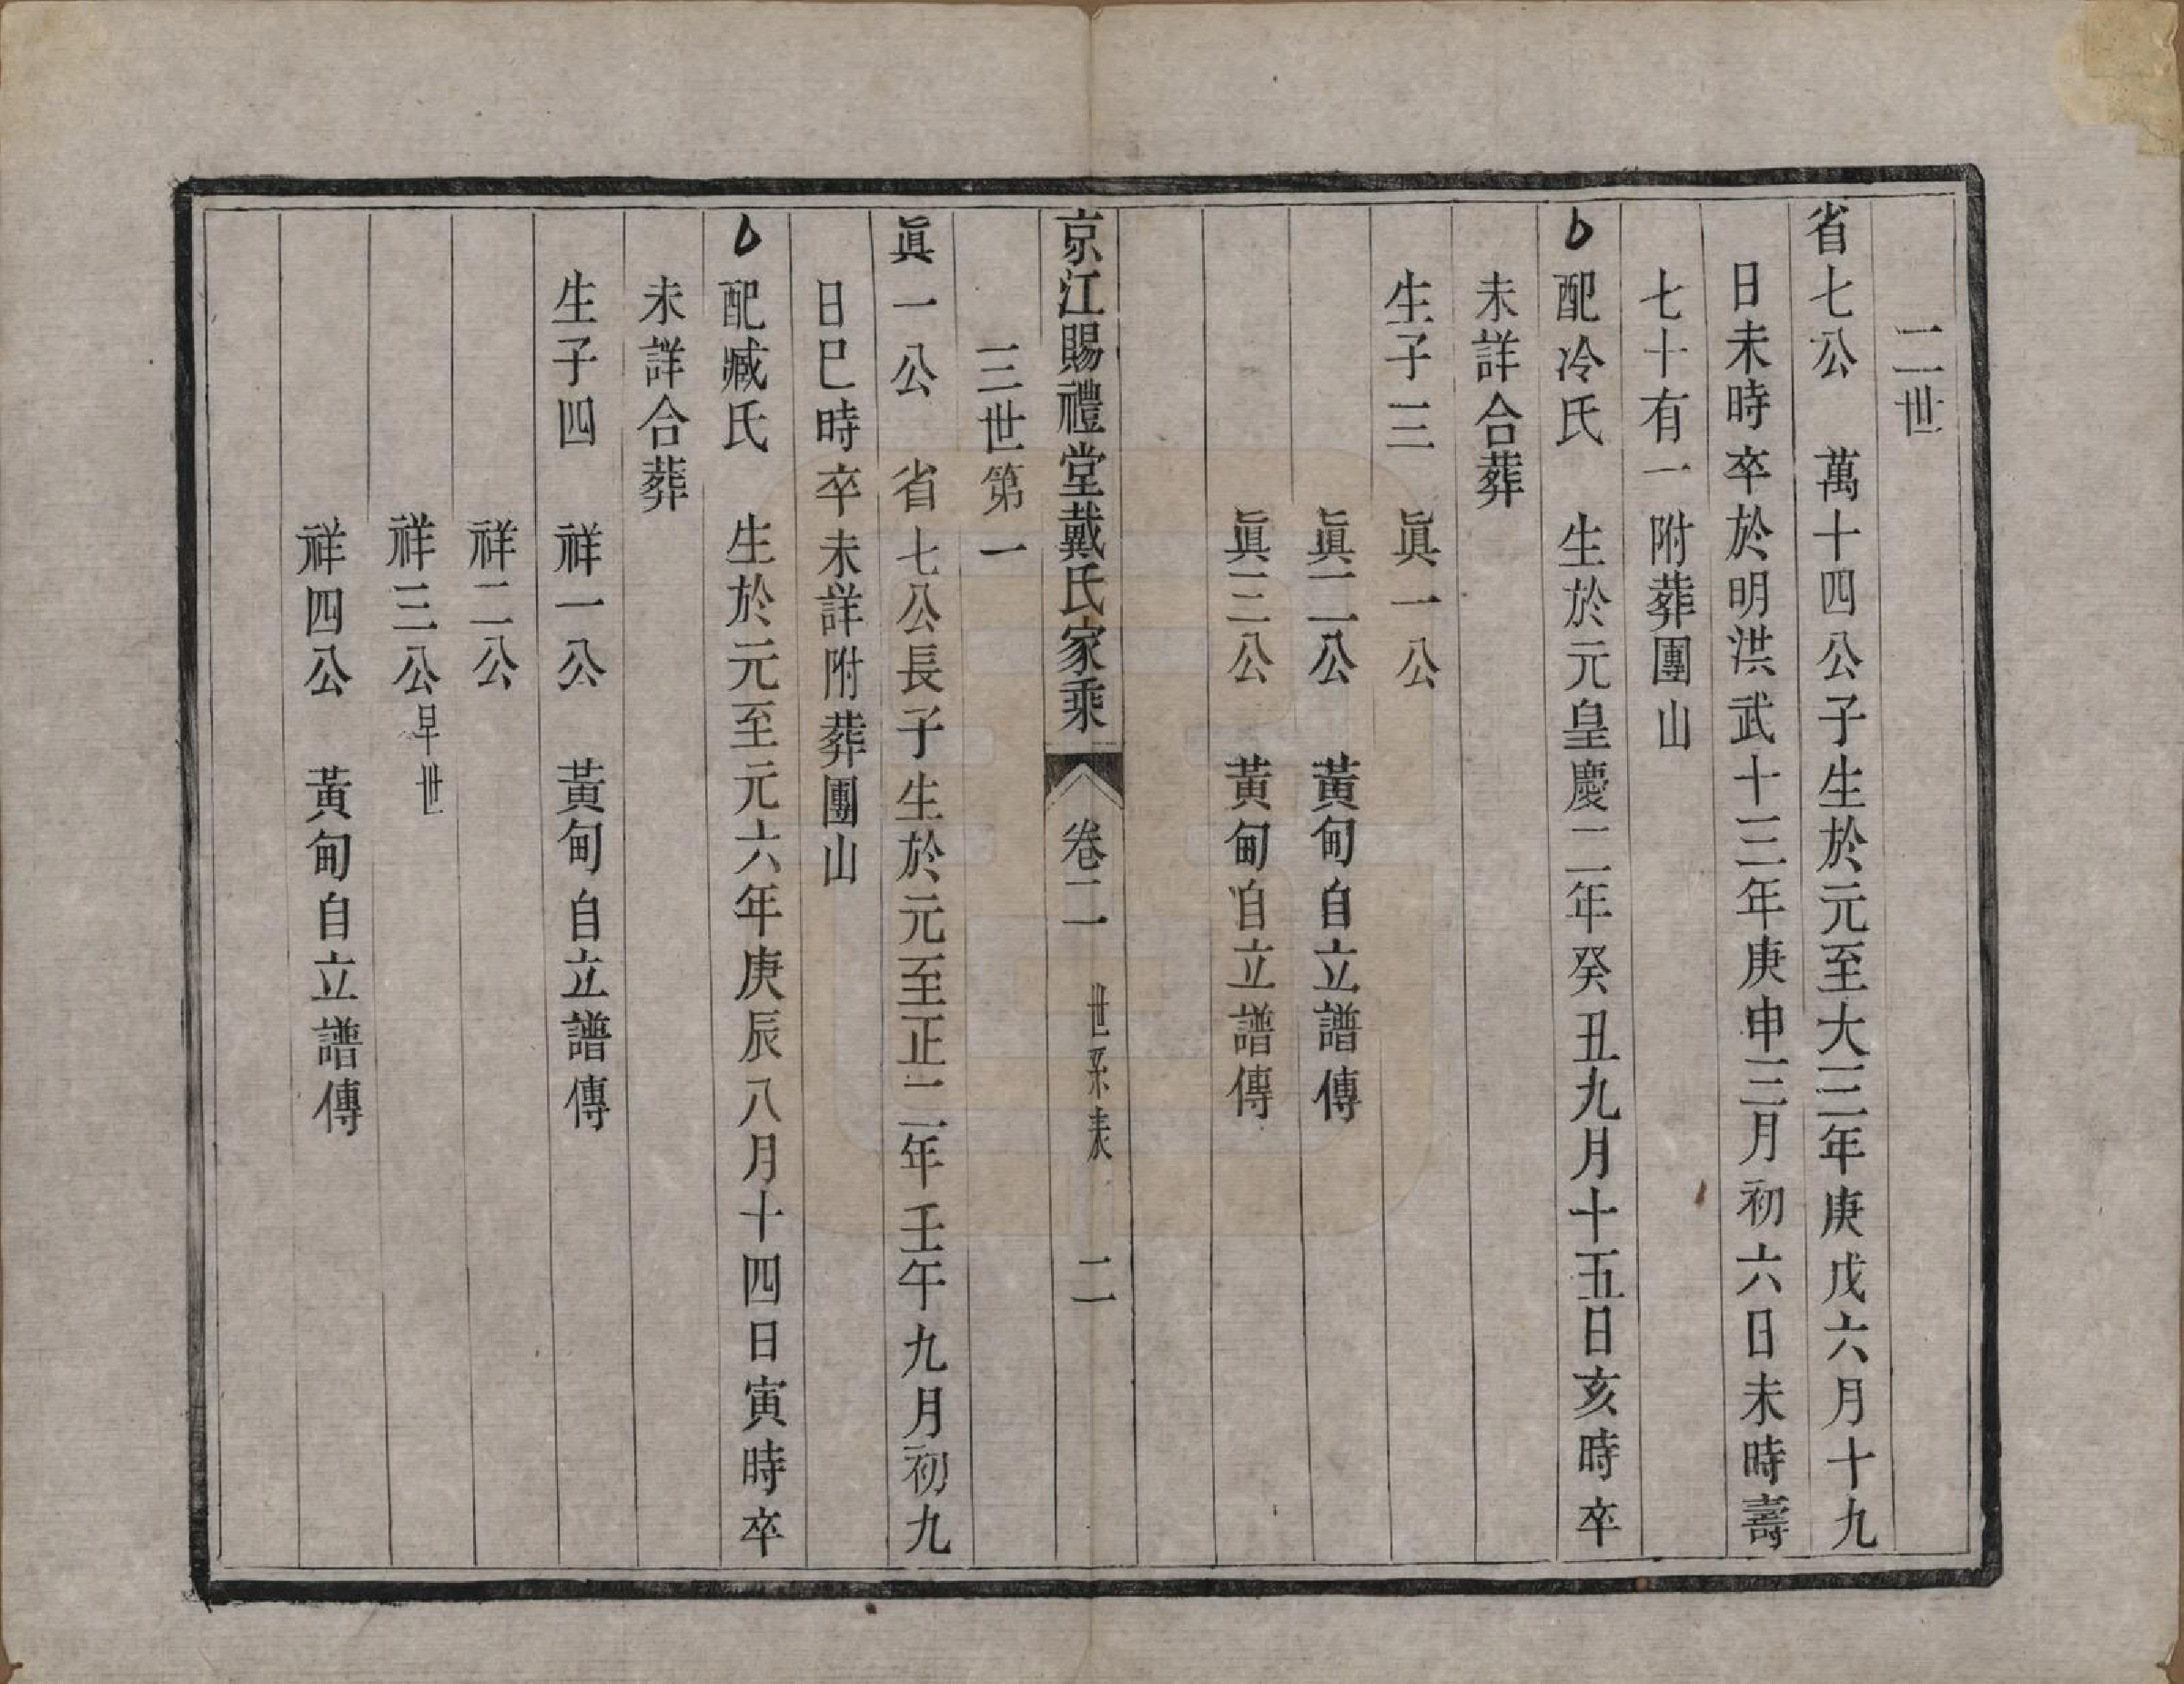 二世
省七公　萬十四公子生於元至大三年庚戌六月十九
日未時卒於明洪武十三年庚申三月初六日未時壽
七十有一附葬團山
配冷氏　生於元皇慶二年癸丑九月十五日亥時卒
未詳合葬
生子三　眞一公
眞二公　黃甸自立譜傳
眞三公　黃甸自立譜傳
京江賜禮堂戴氏家乘　卷二　世系表　二
三世第一
眞一公　省七公長子生於元至正二年壬午九月初九
日巳時卒未詳附葬團山
配臧氏　生於元至元六年庚辰八月十四日寅時卒
未詳合葬
生子四　祥一公　黃甸自立譜傳
祥二公
祥三公早世
祥四公　黃甸自立譜傳